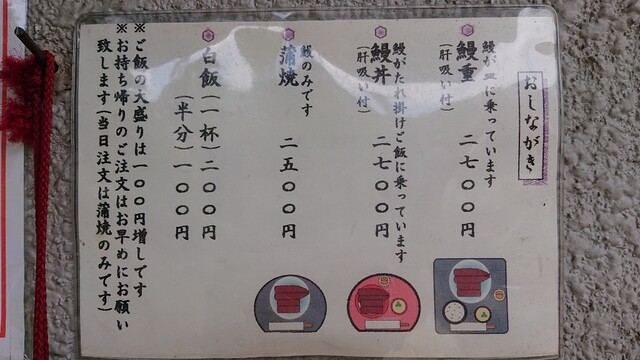 おしながき
鰻が皿に乗っています
鰻重 二七〇〇円
(肝吸い付)
鰻がたれ掛けご飯に乗っています
鰻丼 二七〇〇円
(肝吸い付)
鰻のみです
蒲焼 二五〇〇円
白飯(一杯)二〇〇円
(半分)一〇〇円
※ご飯の大盛りは一〇〇円増しです
※お持ち帰りのご注文はお早めにお願い
致します(当日注文は蒲焼のみです)